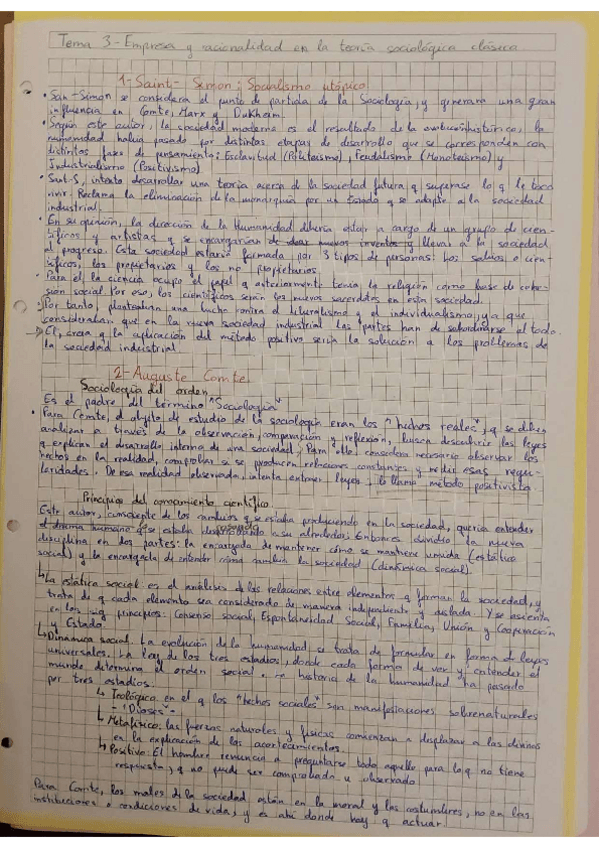 Tema 3- Empresa y racionalidad en la teoría sociológica clásica
1- Saint- Simon: Socialismo utópico
• San-Simon se considera el punto de partida de la Sociología, y generara una gran
influencia en Comte, Marx y Dukheim.
• Según este autor, la sociedad moderna es el resultado de la evolución histórica, la
humanidad había pasado por distintas etapas de desarrollo que se corresponden con
distintas fases de pensamiento: Esclavitud (Politeísmo), Feudalismo (Monoteísmo) y
Industrialismo (Positivismo)
• Saint-S, intento desarrollar una teoría acerca de la sociedad futura q superase lo q le toco
vivir. Reclama la eliminación de la monarquía por un Estado q se adapte a la sociedad
industrial.
• En su opinión, la dirección de la Humanidad debería estar a cargo de un grupo de cien-
tíficos y artistas q se encargarían de idear nuevos inventos y llevar a la sociedad
al progreso. Esta sociedad estaría formada por 3 tipos de personas: los sabios o cien-
tíficos, los propietarios y los no propietarios.
• Para el la ciencia ocupo el papel q anteriormente tenía la religión como base de cohe-
sión social. Por eso, los científicos serán los nuevos sacerdotes en esta sociedad.
• Por tanto, planteaban una lucha contra el liberalismo y el individualismo, ya que
consideraban que en la nueva sociedad industrial las partes han de subordinarse al todo.
→ El, creía q la aplicación del método positivo sería la solución a los problemas de
la sociedad industrial.
2- Auguste Comte.
Sociología del orden
Es el padre del término "Sociología"
• Para Comte, el objeto de estudio de la sociología eran los "hechos reales", q se deben
analizar a través de la observación, comparación y reflexión, busca descubrir las leyes
q explican el desarrollo interno de una sociedad. Para ello considera necesario observar los
hechos en la realidad, comprobar si se producen relaciones constantes y medir esas regu-
laridades. De esa realidad observada, intenta extraer leyes - lo llamo método positivista
Principios del conocimiento científico
Este autor, consciente de los cambios q se estaban produciendo en la sociedad, quería entender
el drama humano q se estaba a su alrededor. Entonces dividio la nueva
disciplina en dos partes: la encargada de mantener cómo se mantiene unida (estática
social) y la encargada de entender cómo cambia la sociedad (dinámica social).
↳ La estática social: es el análisis de las relaciones entre elementos q forman la sociedad, y
trata de q cada elemento sea considerado de manera independiente y aislada. Y se asienta
en los sig principios: Consenso social, Espontaneidad Social, Familia, Unión y Cooperación
y Estado.
↳ Dinámica social. La evolución de la humanidad, se trata de formular en forma de leyes
universales. La ley de los tres estadios, donde cada forma de ver y entender el
mundo determina el orden social. La historia de la humanidad ha pasado
por tres estadios.
↳ Teológico: en el q los "hechos sociales" son manifestaciones sobrenaturales
- "Dioses" -
↳ Metafísico: las fuerzas naturales y físicas comienzan a desplazar a las divinas
en la explicación de los acontecimientos.
↳ Positivo: El hombre renuncia a preguntarse todo aquello para lo q no tiene
respuesta, y q no puede ser comprobada u observado
Para Comte, los males de la sociedad están en la moral y las costumbres, no en las
instituciones o condiciones de vida, y es ahí donde hay q actuar.